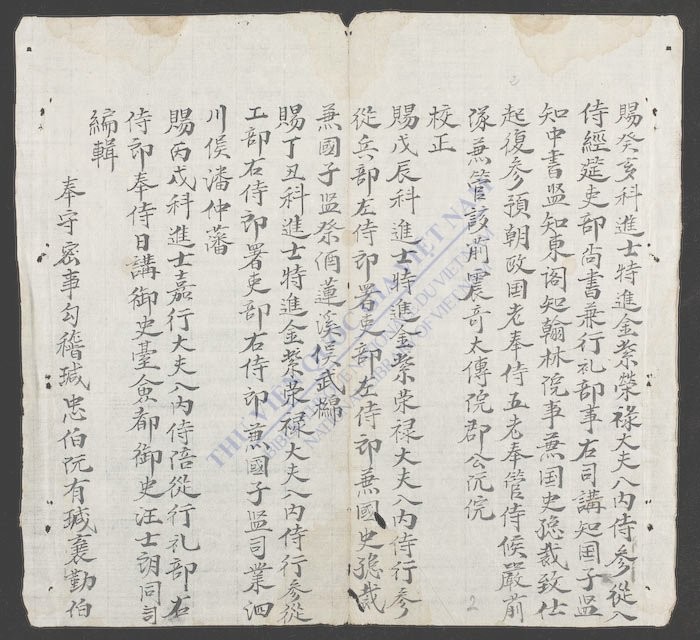 賜癸亥科進士特進金紫榮禄大夫入内侍參從入
侍經筵吏部尚書兼行礼部事右司講知国子监
知中書监知東閣知翰林院事兼国史総裁致仕
起復參預朝政国老奉侍五老奉管侍候嚴前
隊兼管該前震奇太傅院郡公阮俒
校正
賜戊辰科進士特進金紫荣禄大夫入内侍行參
從兵部左侍郎署吏部左侍郎兼國史総裁
兼國子监祭酒蓮溪侯武檰
賜丁丑科進士特進金紫荣禄大夫入内侍行參從
工部右侍郎署吏部右侍郎兼國子监司業泗
川侯潘仲藩
賜丙戌科進士嘉行大夫入内侍陪從行礼部右
侍郎奉侍日講御史臺僉都御史汪士朗同司
編輯
奉守密事勾稽瑊忠伯阮有瑊襄勤伯
THƯ VIỆN QUỐC GIA VIỆT NAM
NATIONAL LIBRARY OF VIETNAM
2